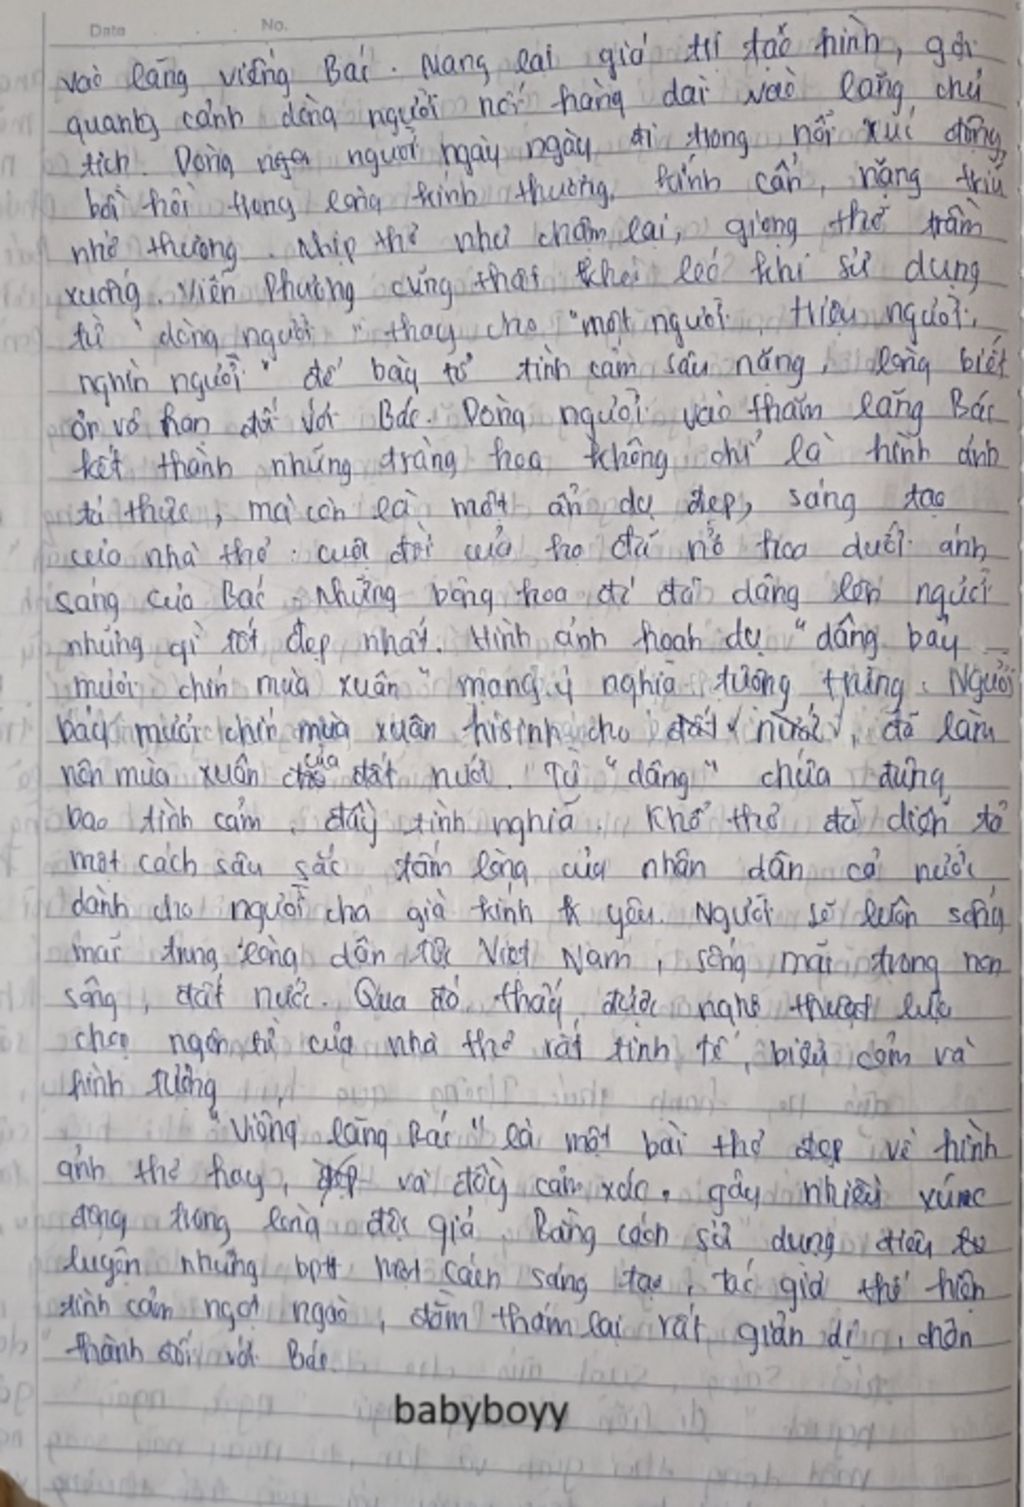 Data No.
vào lăng viếng Bác. Mang lại giá trị tạo hình, gợi
quang cảnh dòng người nối hàng dài vào lăng chủ
tịch. Dòng người ngày ngày đi trong nỗi xúc động,
bồi hồi trong lòng kính thương, kính cẩn, nặng trĩu
nhớ thương. Nhịp thơ như chậm lại, giọng thơ trầm
xuống. Viễn Phương cũng thật khéo léo khi sử dụng
từ "dòng người" thay cho "một người, triệu người,
nghìn người" để bày tỏ tình cảm sâu nặng, lòng biết
ơn vô hạn đối với Bác. Dòng người vào thăm lăng Bác
kết thành những tràng hoa không chỉ là hình ảnh
tả thực, mà còn là một ẩn dụ đẹp, sáng tạo
của nhà thơ: cuộc đời của họ đã nở hoa dưới ánh
sáng của Bác. Những bông hoa đó đã dâng lên người
những gì tốt đẹp nhất. Hình ảnh hoán dụ "dâng bảy
mươi chín mùa xuân" mang ý nghĩa tượng trưng. Người
bảy mươi chín mùa xuân hi sinh cho đất nước, đã làm
nên mùa xuân của đất nước. Từ "dâng" chứa đựng
bao tình cảm, đầy tình nghĩa. Khổ thơ đã diễn tả
một cách sâu sắc tấm lòng của nhân dân cả nước
dành cho người cha già kính yêu. Người sẽ luôn sống
mãi trong lòng dân tộc Việt Nam, sống mãi trong non
sông, đất nước. Qua đó thấy được nghệ thuật lựa
chọn ngôn từ của nhà thơ rất tinh tế, biểu cảm và
hình tượng
"Viếng lăng Bác" là một bài thơ đẹp về hình
ảnh thơ hay, và đầy cảm xúc, gây nhiều xúc
động trong lòng độc giả. Bằng cách sử dụng điêu
luyện những bptt một cách sáng tạo, tác giả thể hiện
tình cảm ngọt ngào, đằm thắm lại rất giản dị, chân
thành đối với Bác.
babyboyy